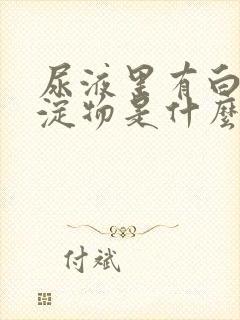 尿液里有白
淀物是什麼
付斌